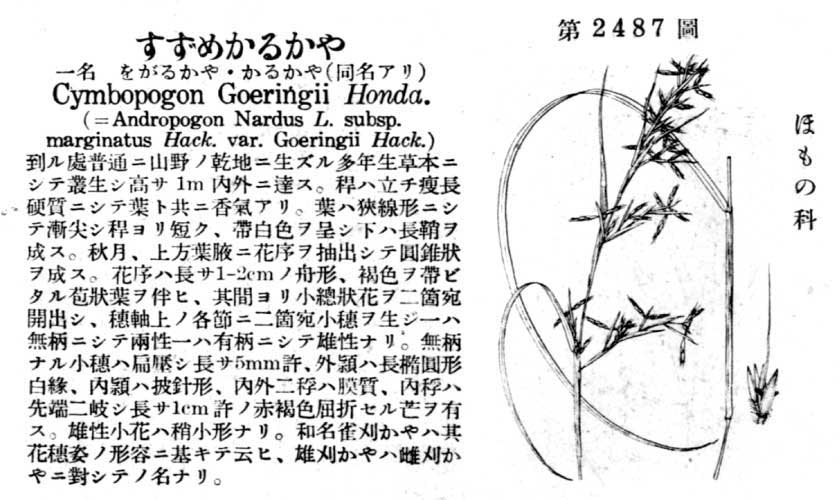 すずめかるかや
一名 をがるかや・かるかや(同名アリ)
Cymbopogon Goeringii Honda.
(=Andropogon Nardus L. subsp.
marginatus Hack. var. Goeringii Hack.)
到ル處普通ニ山野ノ乾地ニ生ズル多年生草本ニ
シテ叢生シ高サ 1m 內外ニ達ス。稈ハ立チ瘦長
硬質ニシテ葉ト共ニ香氣アリ。葉ハ狹線形ニシ
テ漸尖シ稈ヨリ短ク、帶白色ヲ呈シ下ハ長鞘ヲ
成ス。秋月、上方葉腋ニ花序ヲ抽出シテ圓錐狀
ヲ成ス。花序ハ長サ1-2cmノ舟形、褐色ヲ帶ビ
タル苞狀葉ヲ伴ヒ、其間ヨリ小總狀花ヲ二箇宛
開出シ、穗軸上ノ各節ニ二箇宛小穗ヲ生ジ一ハ
無柄ニシテ兩性一ハ有柄ニシテ雄性ナリ。無柄
ナル小穗ハ扁壓シ長サ5mm許、外穎ハ長橢圓形
白緣、內穎ハ披針形、內外二稃ハ膜質、內稃ハ
先端二岐シ長サ1cm許ノ赤褐色屈折セル芒ヲ有
ス。雄性小花ハ稍小形ナリ。和名雀刈かやハ其
花穗姿ノ形容ニ基キテ云ヒ、雄刈かやハ雌刈か
やニ對シテノ名ナリ。
第2487圖
ほもの科